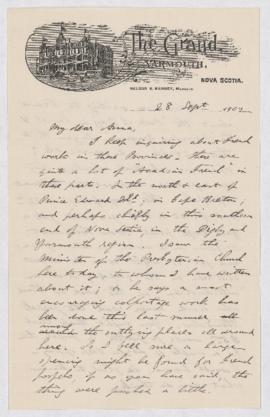 The Grand
YARMOUTH,
NOVA SCOTIA.
28 Sept 1902
My dear Anna,
I keep inquiring about French
work in these Provinces. There are
quite a lot of "Acadian French" in
these parts. In the north & east of
Prince Edward Isl., in Cape Breton;
and perhaps chiefly in this southern
end of Nova Scotia, in the Digby and
Yarmouth region. I saw the
Minister of the Presbyterian Church
here today to whom I have written
about it; & he says a most
encouraging colportage work has
been done this last summer
the outlying places all around
here. So I feel sure a large
opening might be found for French
gospels, if as you have said, the
thing were pushed a little.